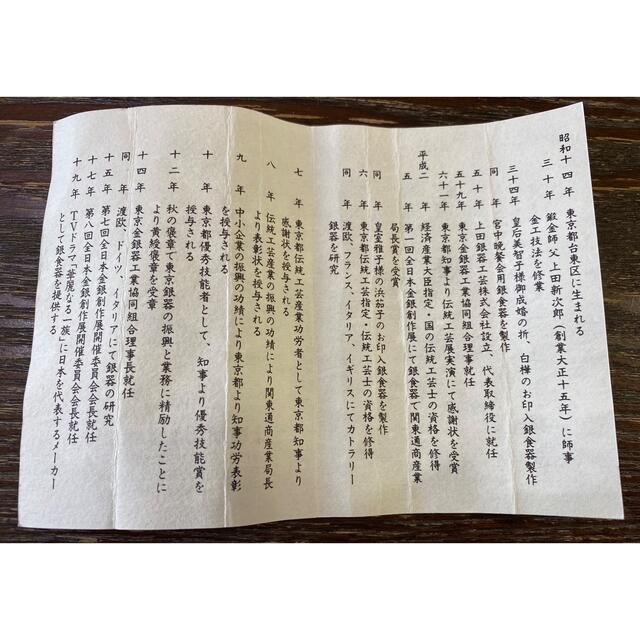 昭和十四年 東京都台東区に生まれる
三十年 鍛金師 父 上田新次郎(創業大正十五年)に師事
金工技法を修業
三十四年 皇后美智子様御成婚の折、白樺のお印入銀食器製作
同年 宮中晩餐会用銀食器を製作
五十年 上田銀器工芸株式会社設立、代表取締役に就任
五十九年 東京金銀器工業協同組合理事就任
六十一年 東京都知事より伝統工芸展実演にて感謝状を受賞
平成二年 経済産業大臣指定・国の伝統工芸士の資格を修得
五年 第一回全日本金銀創作展にて銀食器で関東通商産業
局長賞を受賞
同年 皇室雅子様の浜茄子のお印入銀食器を製作
六年 東京都伝統工芸指定・伝統工芸士の資格を修得
同年 渡欧、フランス、イタリア、イギリスにてカトラリー
銀器を研究
七年 東京都伝統工芸産業功労者として東京都知事より
感謝状を授与される
八年 伝統工芸産業の振興の功績により関東通商産業局長
より表彰状を授与される
九年 中小企業の振興の功績により東京都より知事功労表彰
を授与される
十年 東京都優秀技能者として、知事より優秀技能賞を
授与される
十二年 秋の褒章で東京銀器の振興と業務に精励したことに
より黄綬褒章を受章
十四年 東京金銀器工業協同組合理事長就任
同年 渡欧、ドイツ、イタリアにて銀器の研究
十五年 第七回全日本金銀創作展開催委員会会長就任
十七年 第八回全日本金銀創作展開催委員会会長就任
十九年 TVドラマ「華麗なる一族」に日本を代表するメーカー
として銀食器を提供する